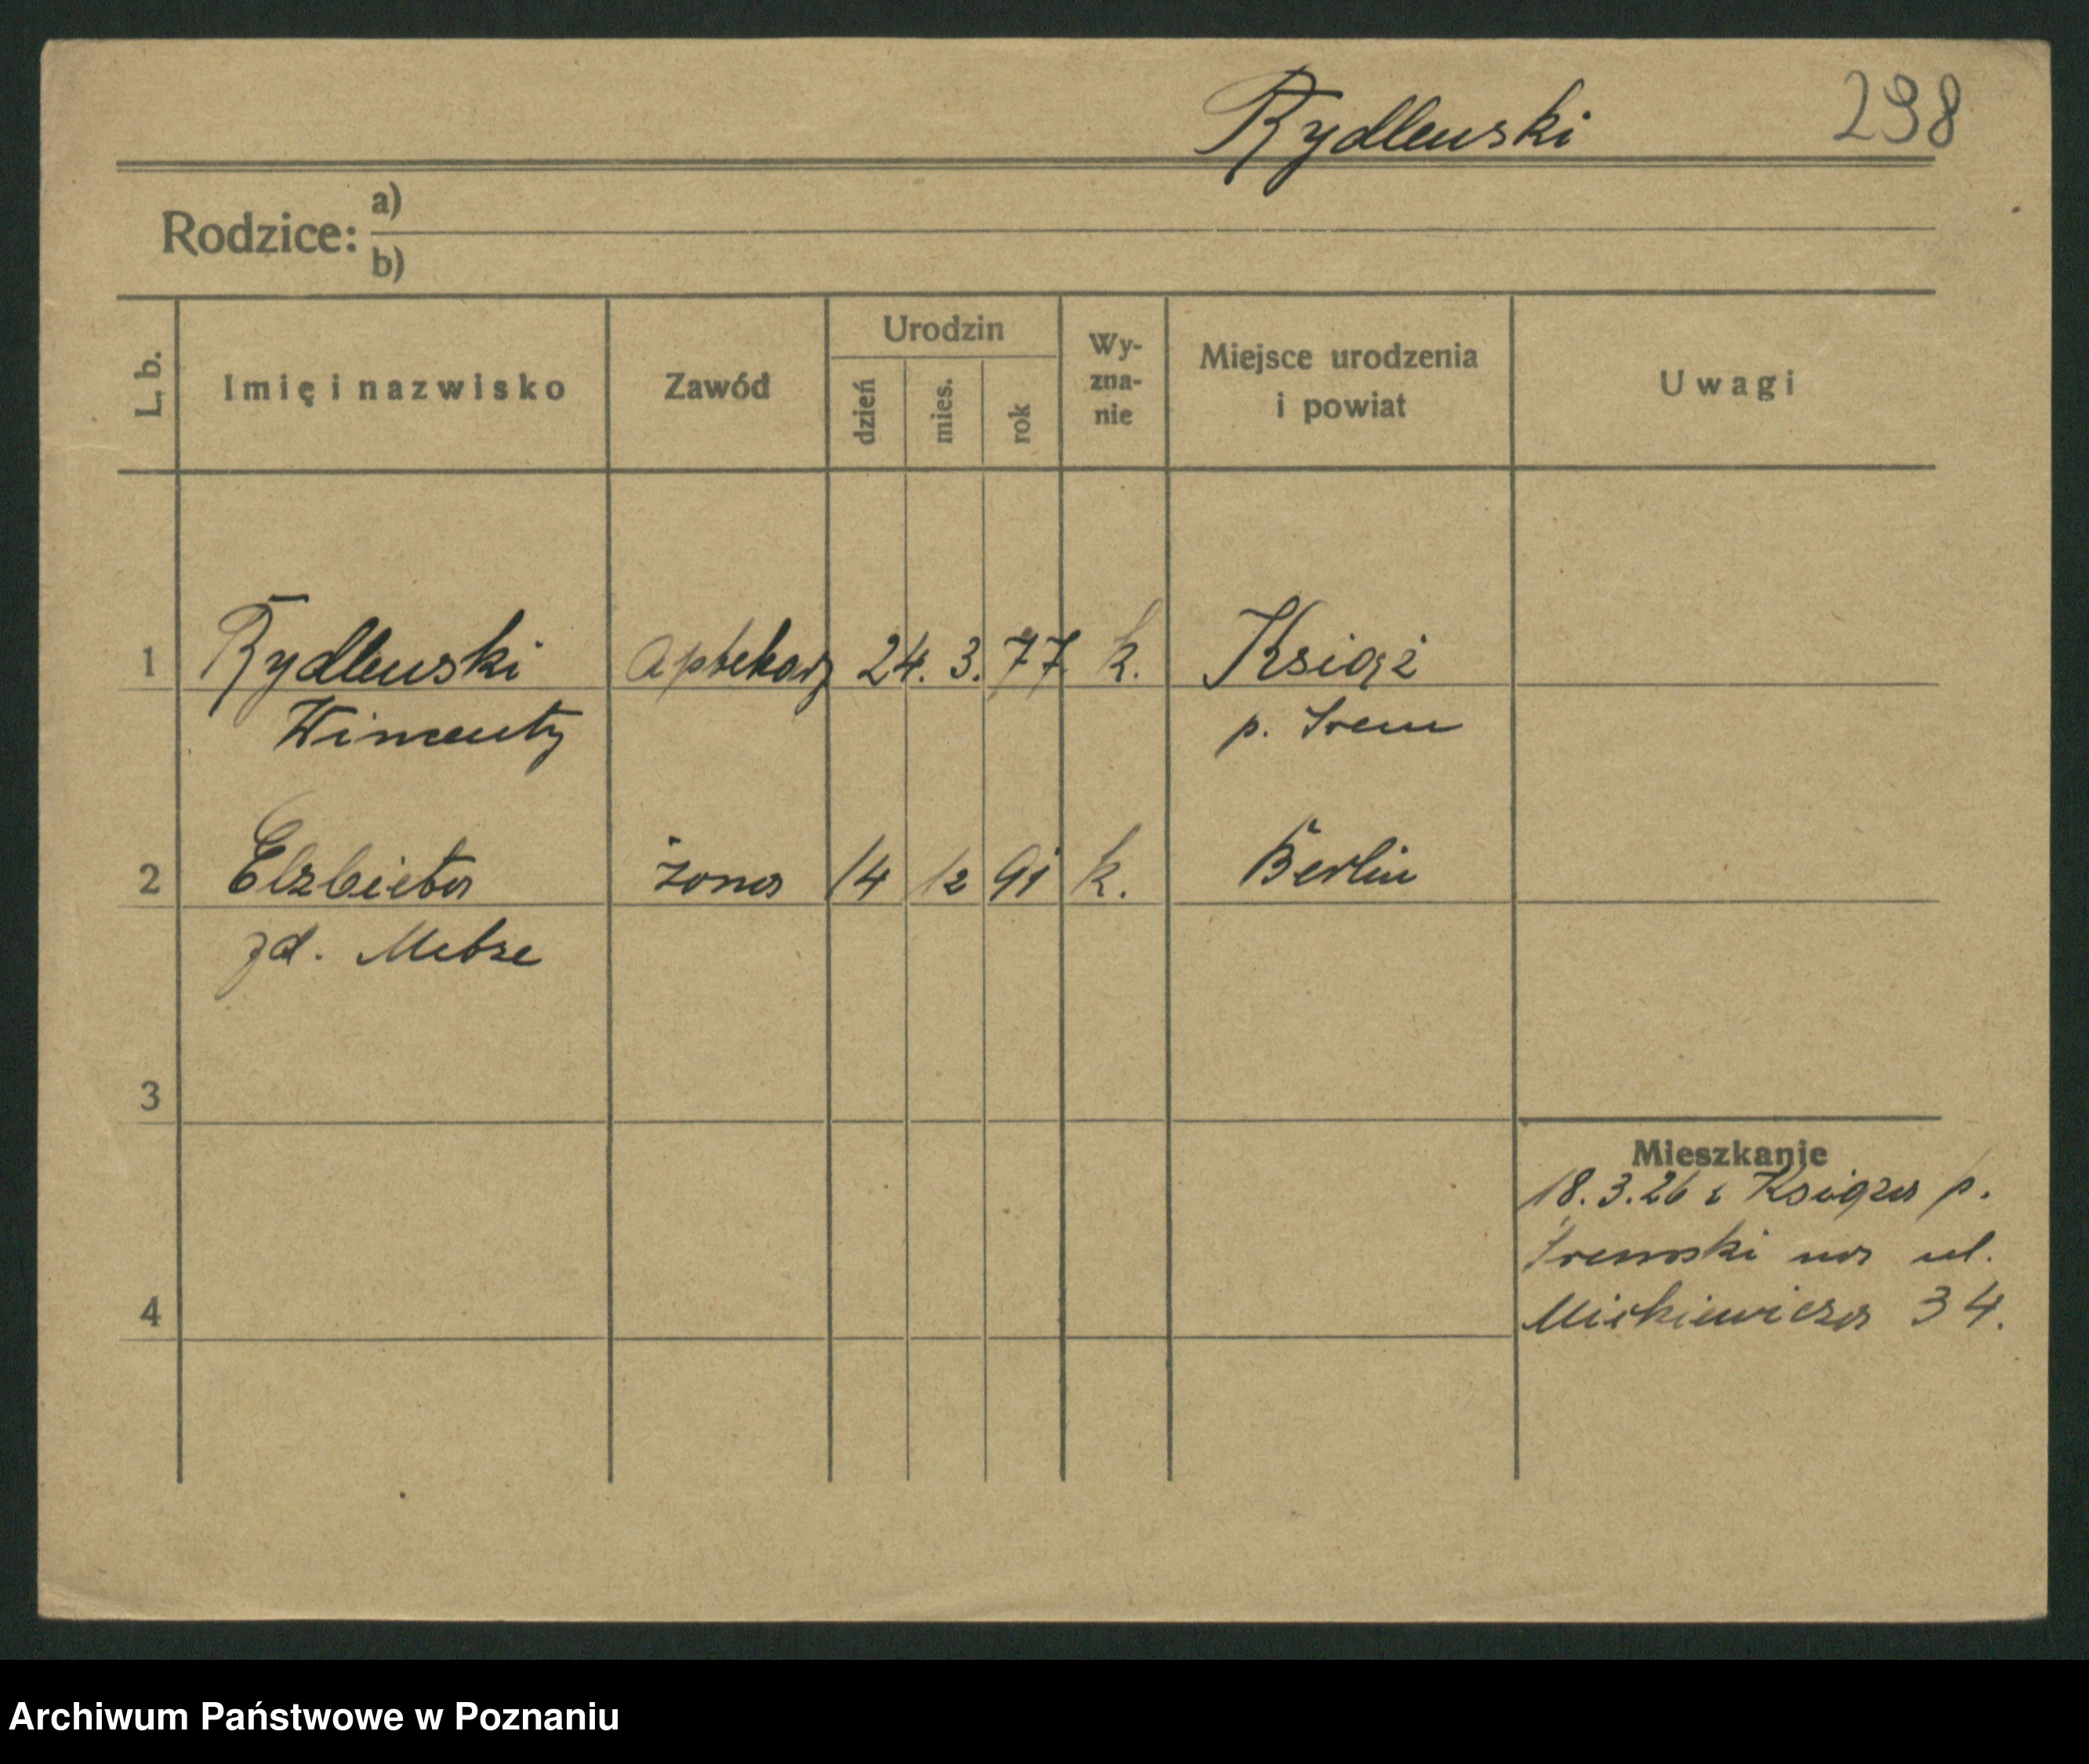 Rydlewski 298
Rodzice: a)
b)
L. b. Imię i nazwisko Zawód Urodzin dzień mies. rok Wy-zna-nie Miejsce urodzenia i powiat Uwagi
1 Rydlewski Aptekarz 24. 3. 77 k. Książ
Wincenty p. Śrem
2 Elzbieta żona 14 12 91 k. Berlin
zd. Metze
3
Mieszkanie
18.3.26 z Książa p.
Śremski na ul.
4 Mickiewicza 34.
Archiwum Państwowe w Poznaniu